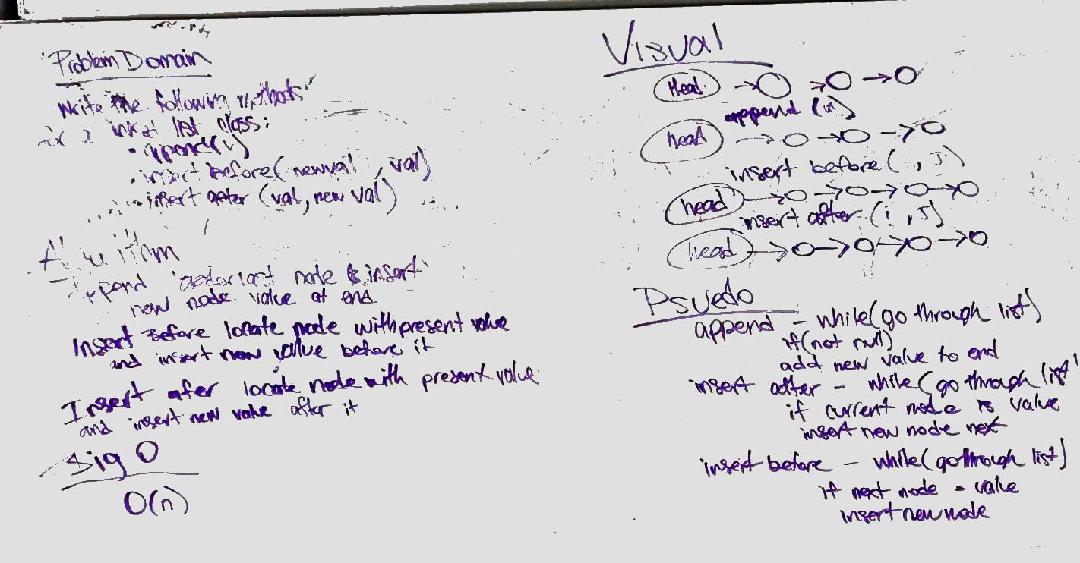 Problem Domain
Write the following methods
linked list class:
• append(v)
• insert before(newval, val)
insert after (val, new val)
append last node & insert
new node value at end
Insert Before locate node with present value
and insert new value before it
Insert afer locate node with present value
and insert new value after it
Big O
O(n)
Visual
Head
append (x)
head
insert before ( , 5)
head
insert after ( , 5)
head
Psuedo
append - while(go through list)
if(not null)
add new value to end
insert after - while(go through list)
if current node is value
insert new node next
insert before - while(go through list)
if next node = value
insert new node